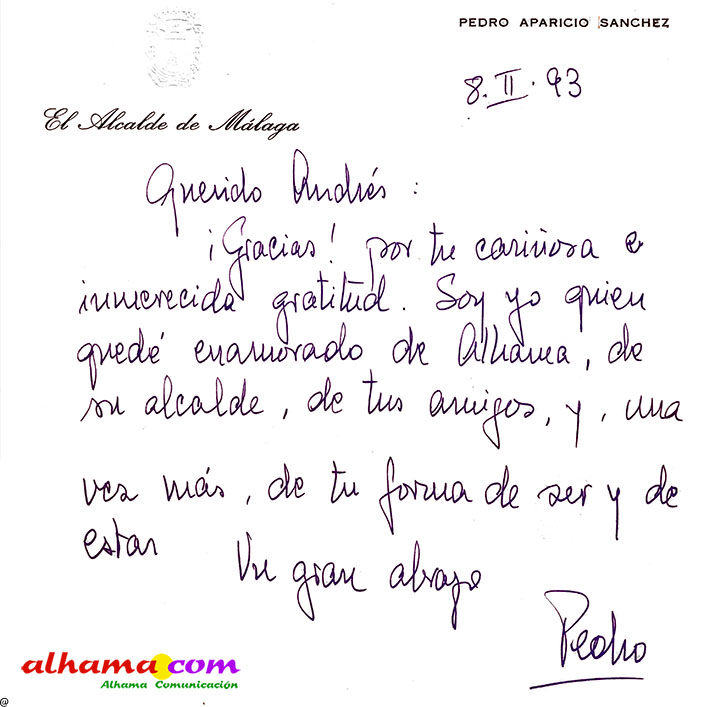 PEDRO APARICIO SANCHEZ
8.II.93
El Alcalde de Málaga
Querido Andrés:
¡Gracias! por tu cariñosa e
inmerecida gratitud. Soy yo quien
quedé enamorado de Alhama, de
su alcalde, de tus amigos, y, una
vez más, de tu forma de ser y de
estar
Un gran abrazo
Pedro
alhama.com
Alhama Comunicación
@